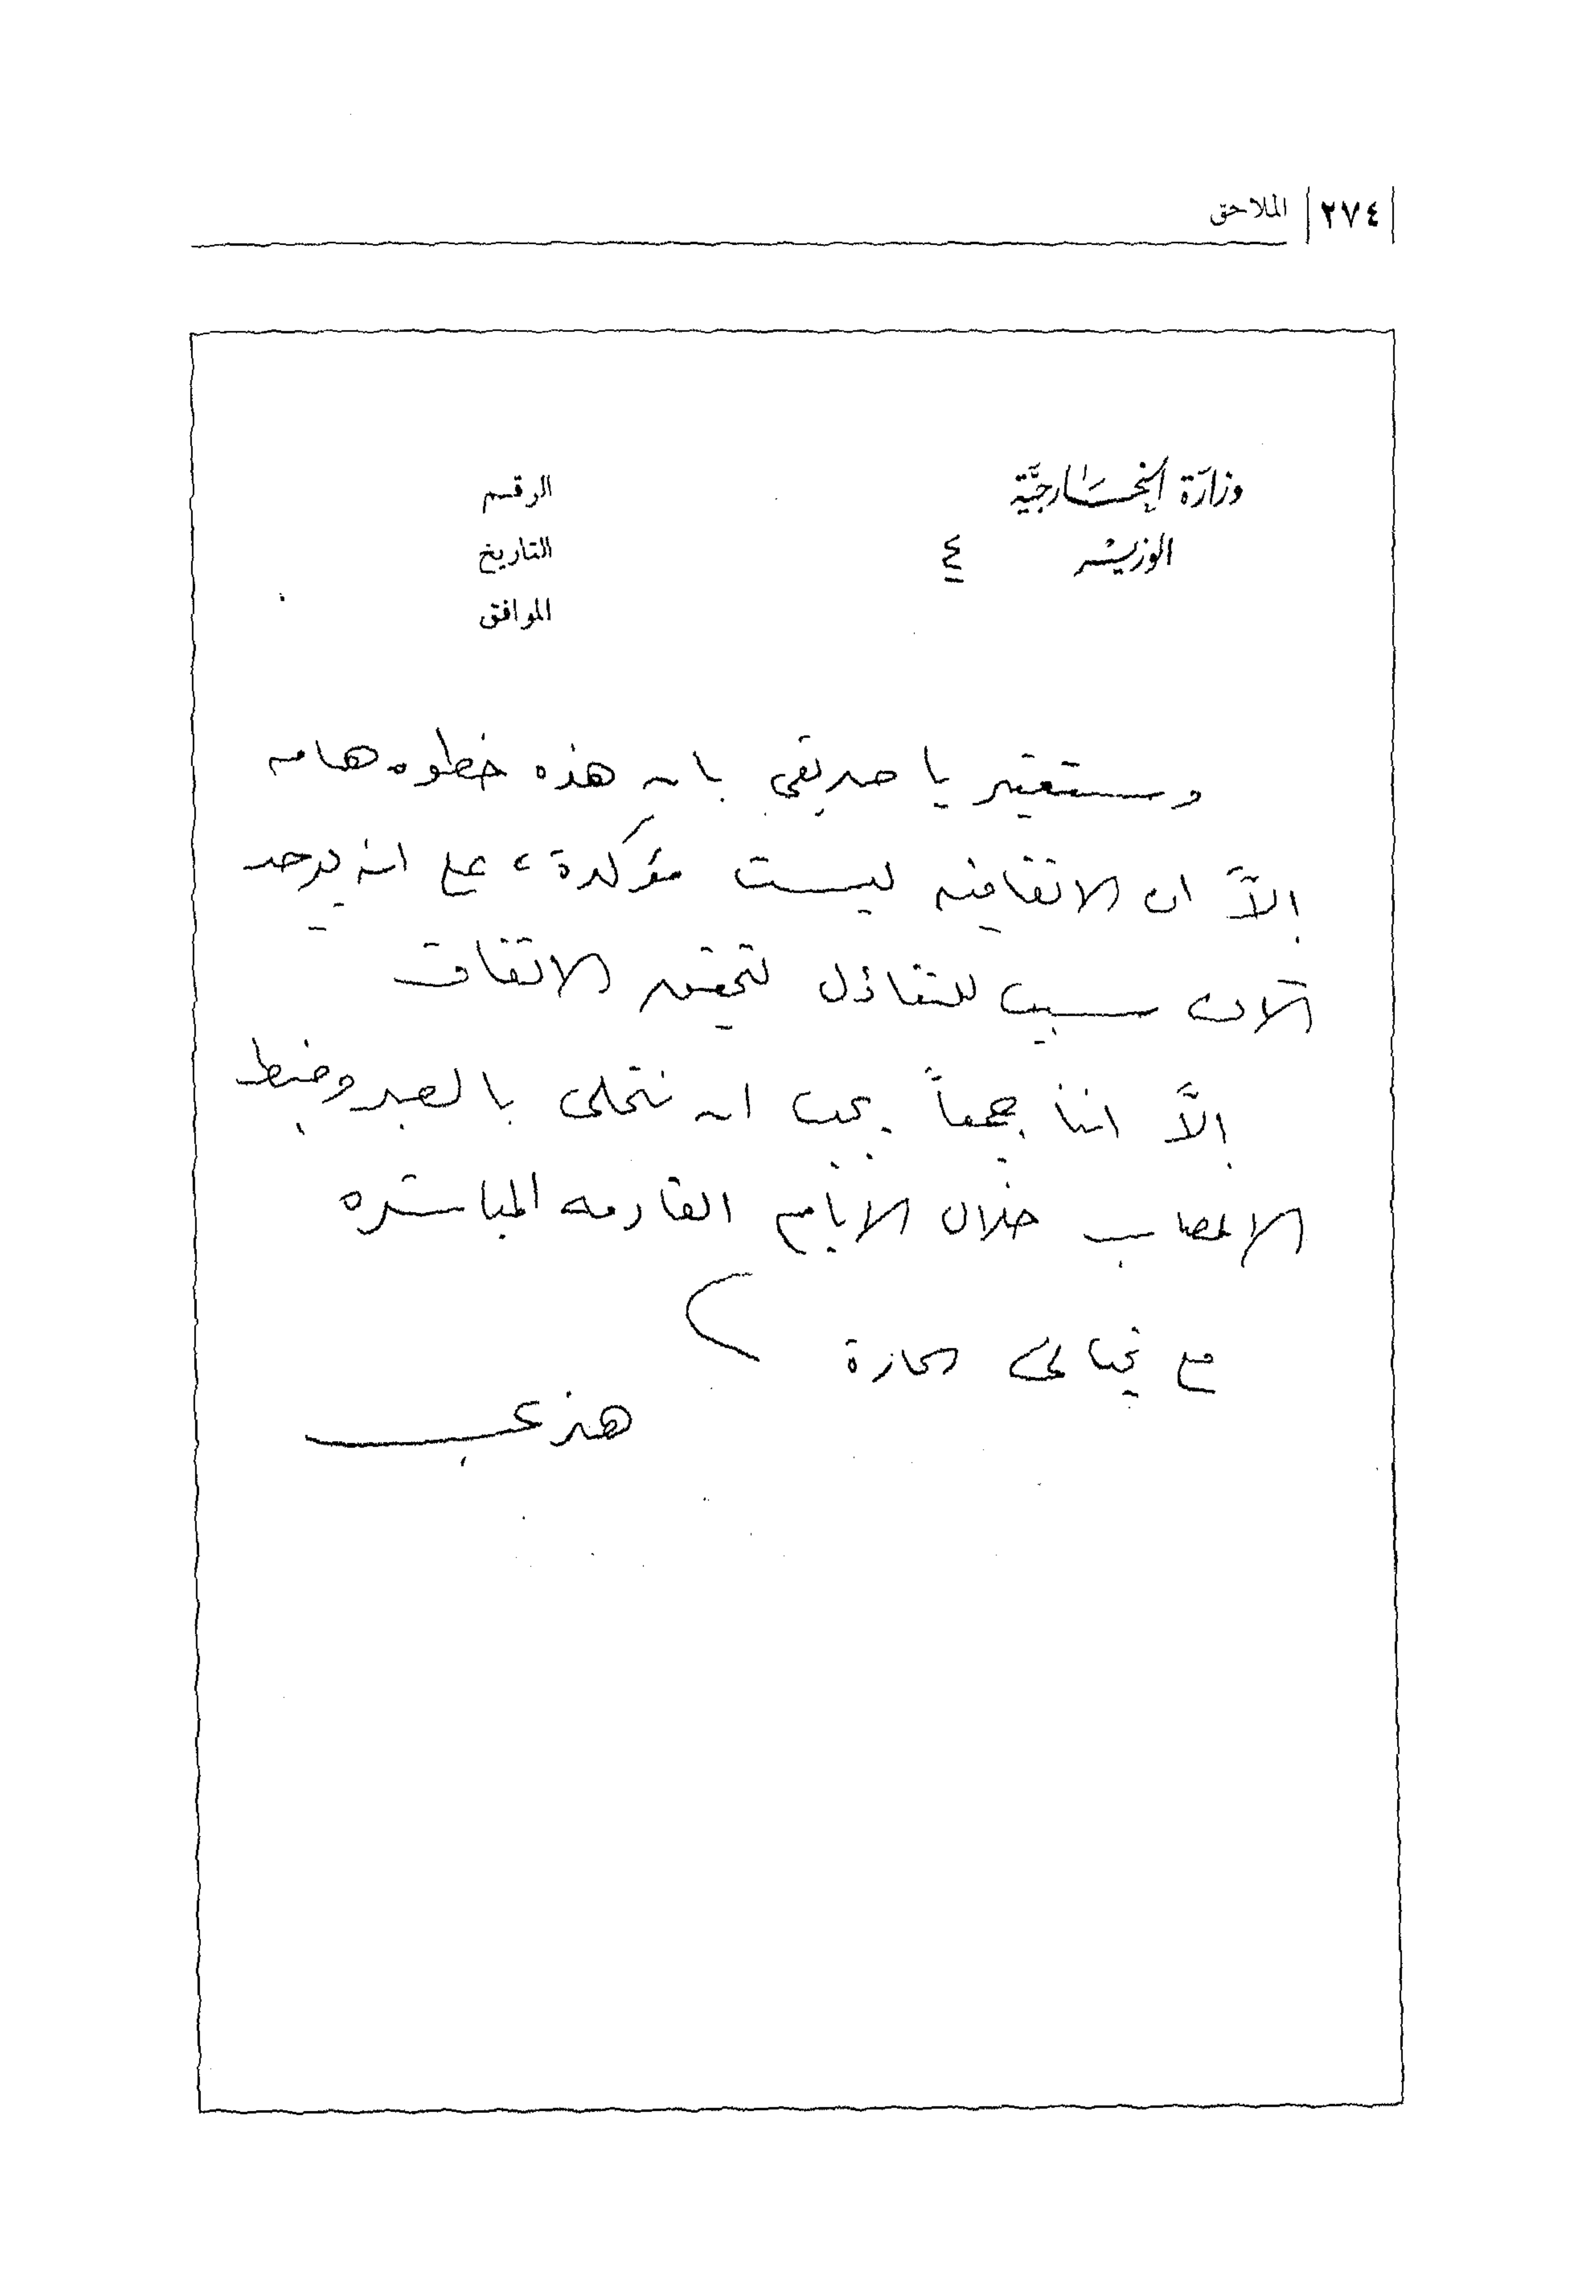 ٢٧٤ | الملاحق
وزارة الخارجية
الوزير ٤
الرقم
التاريخ
الموافق
وستعتبر يا صديقي بان هذه خطوه هامه
إلاَّ ان الاتفاقيه ليست مؤكدة، على انه يوجد
الآن سبب للتفاؤل لتحقيق الاتفاق
إلاَّ اننا جميعاً يجب ان نتحلى بالصبر وضبط
الاعصاب خلال الايام القادمه المباشره
مع تحياتي الحارة